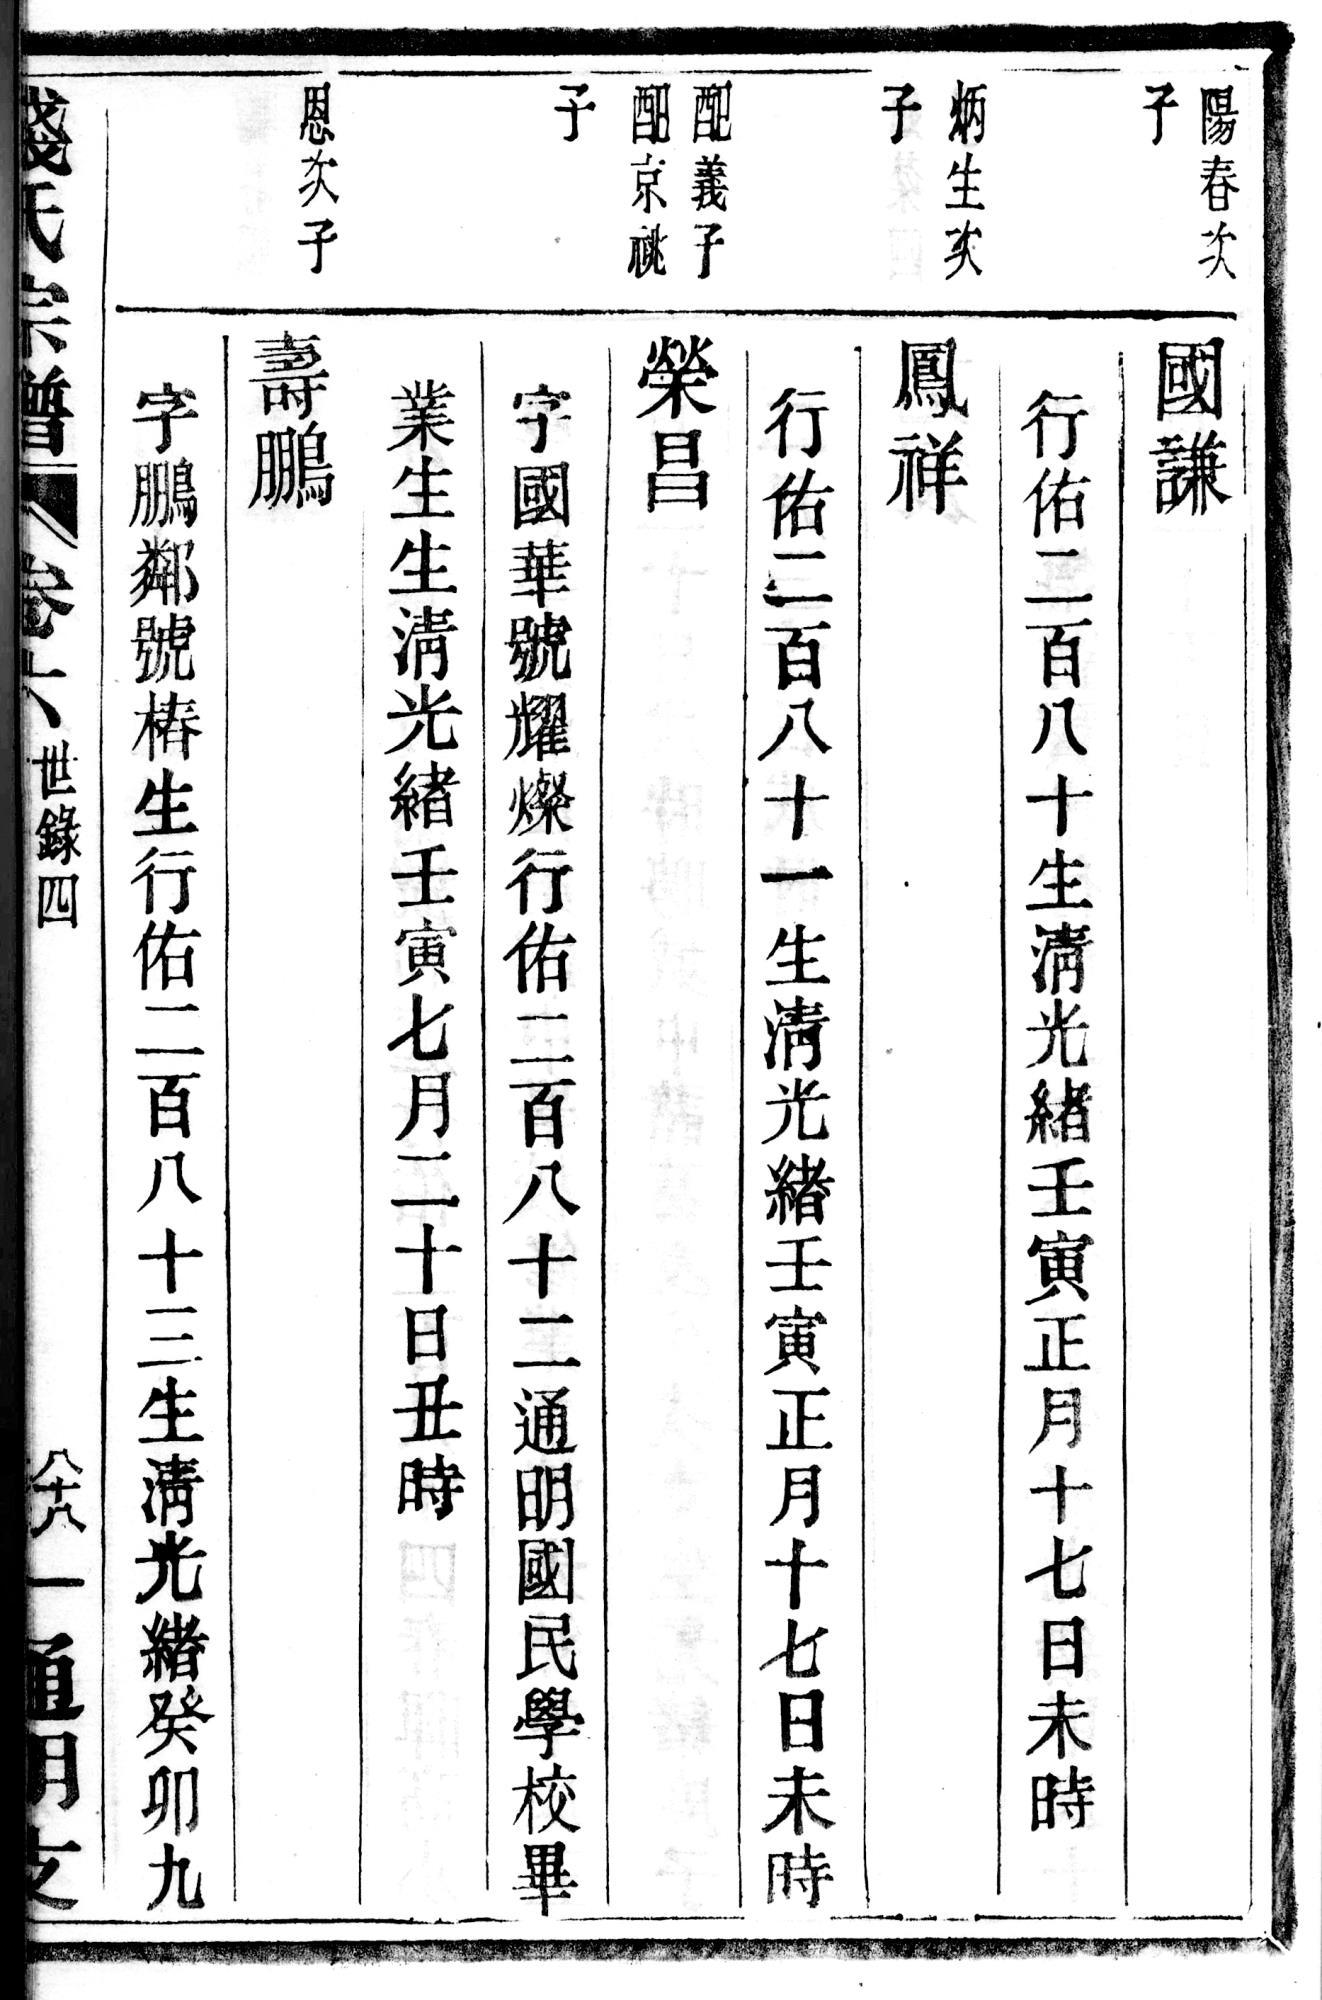 陽春次
子
國謙
行佑二百八十生淸光緒壬寅正月十七日未時
炳生次
子
鳳祥
行佑二百八十一生淸光緒壬寅正月十七日未時
配義子
配京祧
子
榮昌
字國華號耀燦行佑二百八十二通明國民學校畢
業生生淸光緒壬寅七月二十日丑時
恩次子
壽鵬
字鵬鄰號椿生行佑二百八十三生淸光緒癸卯九
錢氏宗譜 卷六 世錄四 八十八 通明支